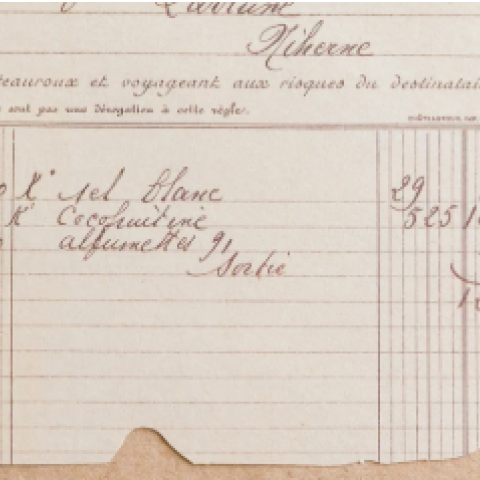 Niherne
teauroux et voyageant aux risques du destinatai
e sont pas une dérogation à cette règle.
K° sel blanc 29
K° Cocofruitine 5 25 1
allumettes 91
Sortie
1